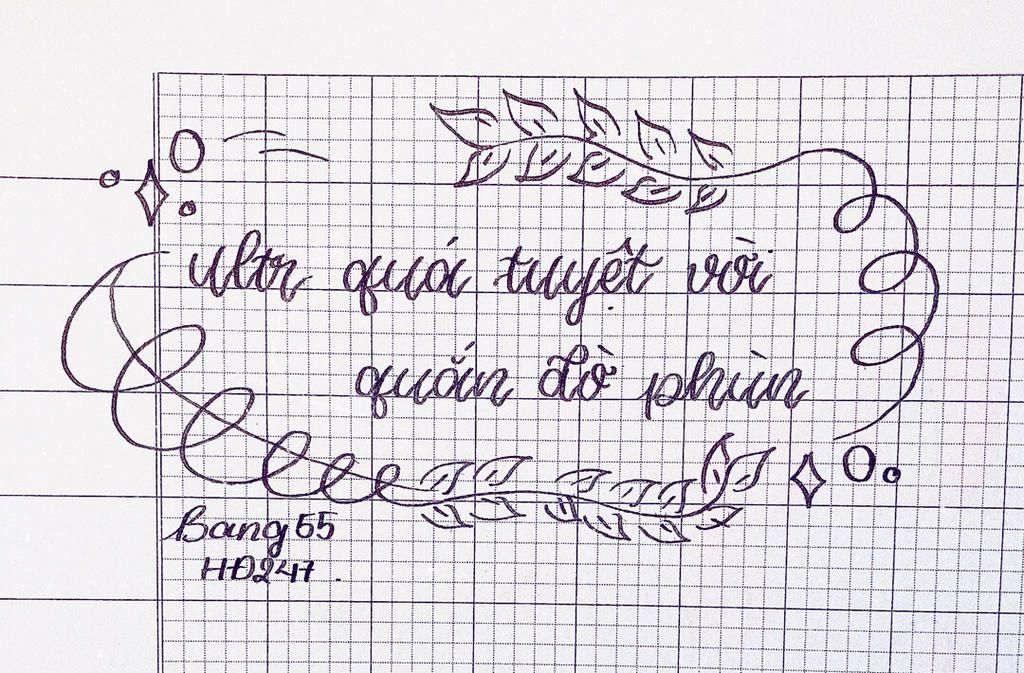 ultr quá tuyệt vời
quán đò phùn
Bang 55
HĐ247.